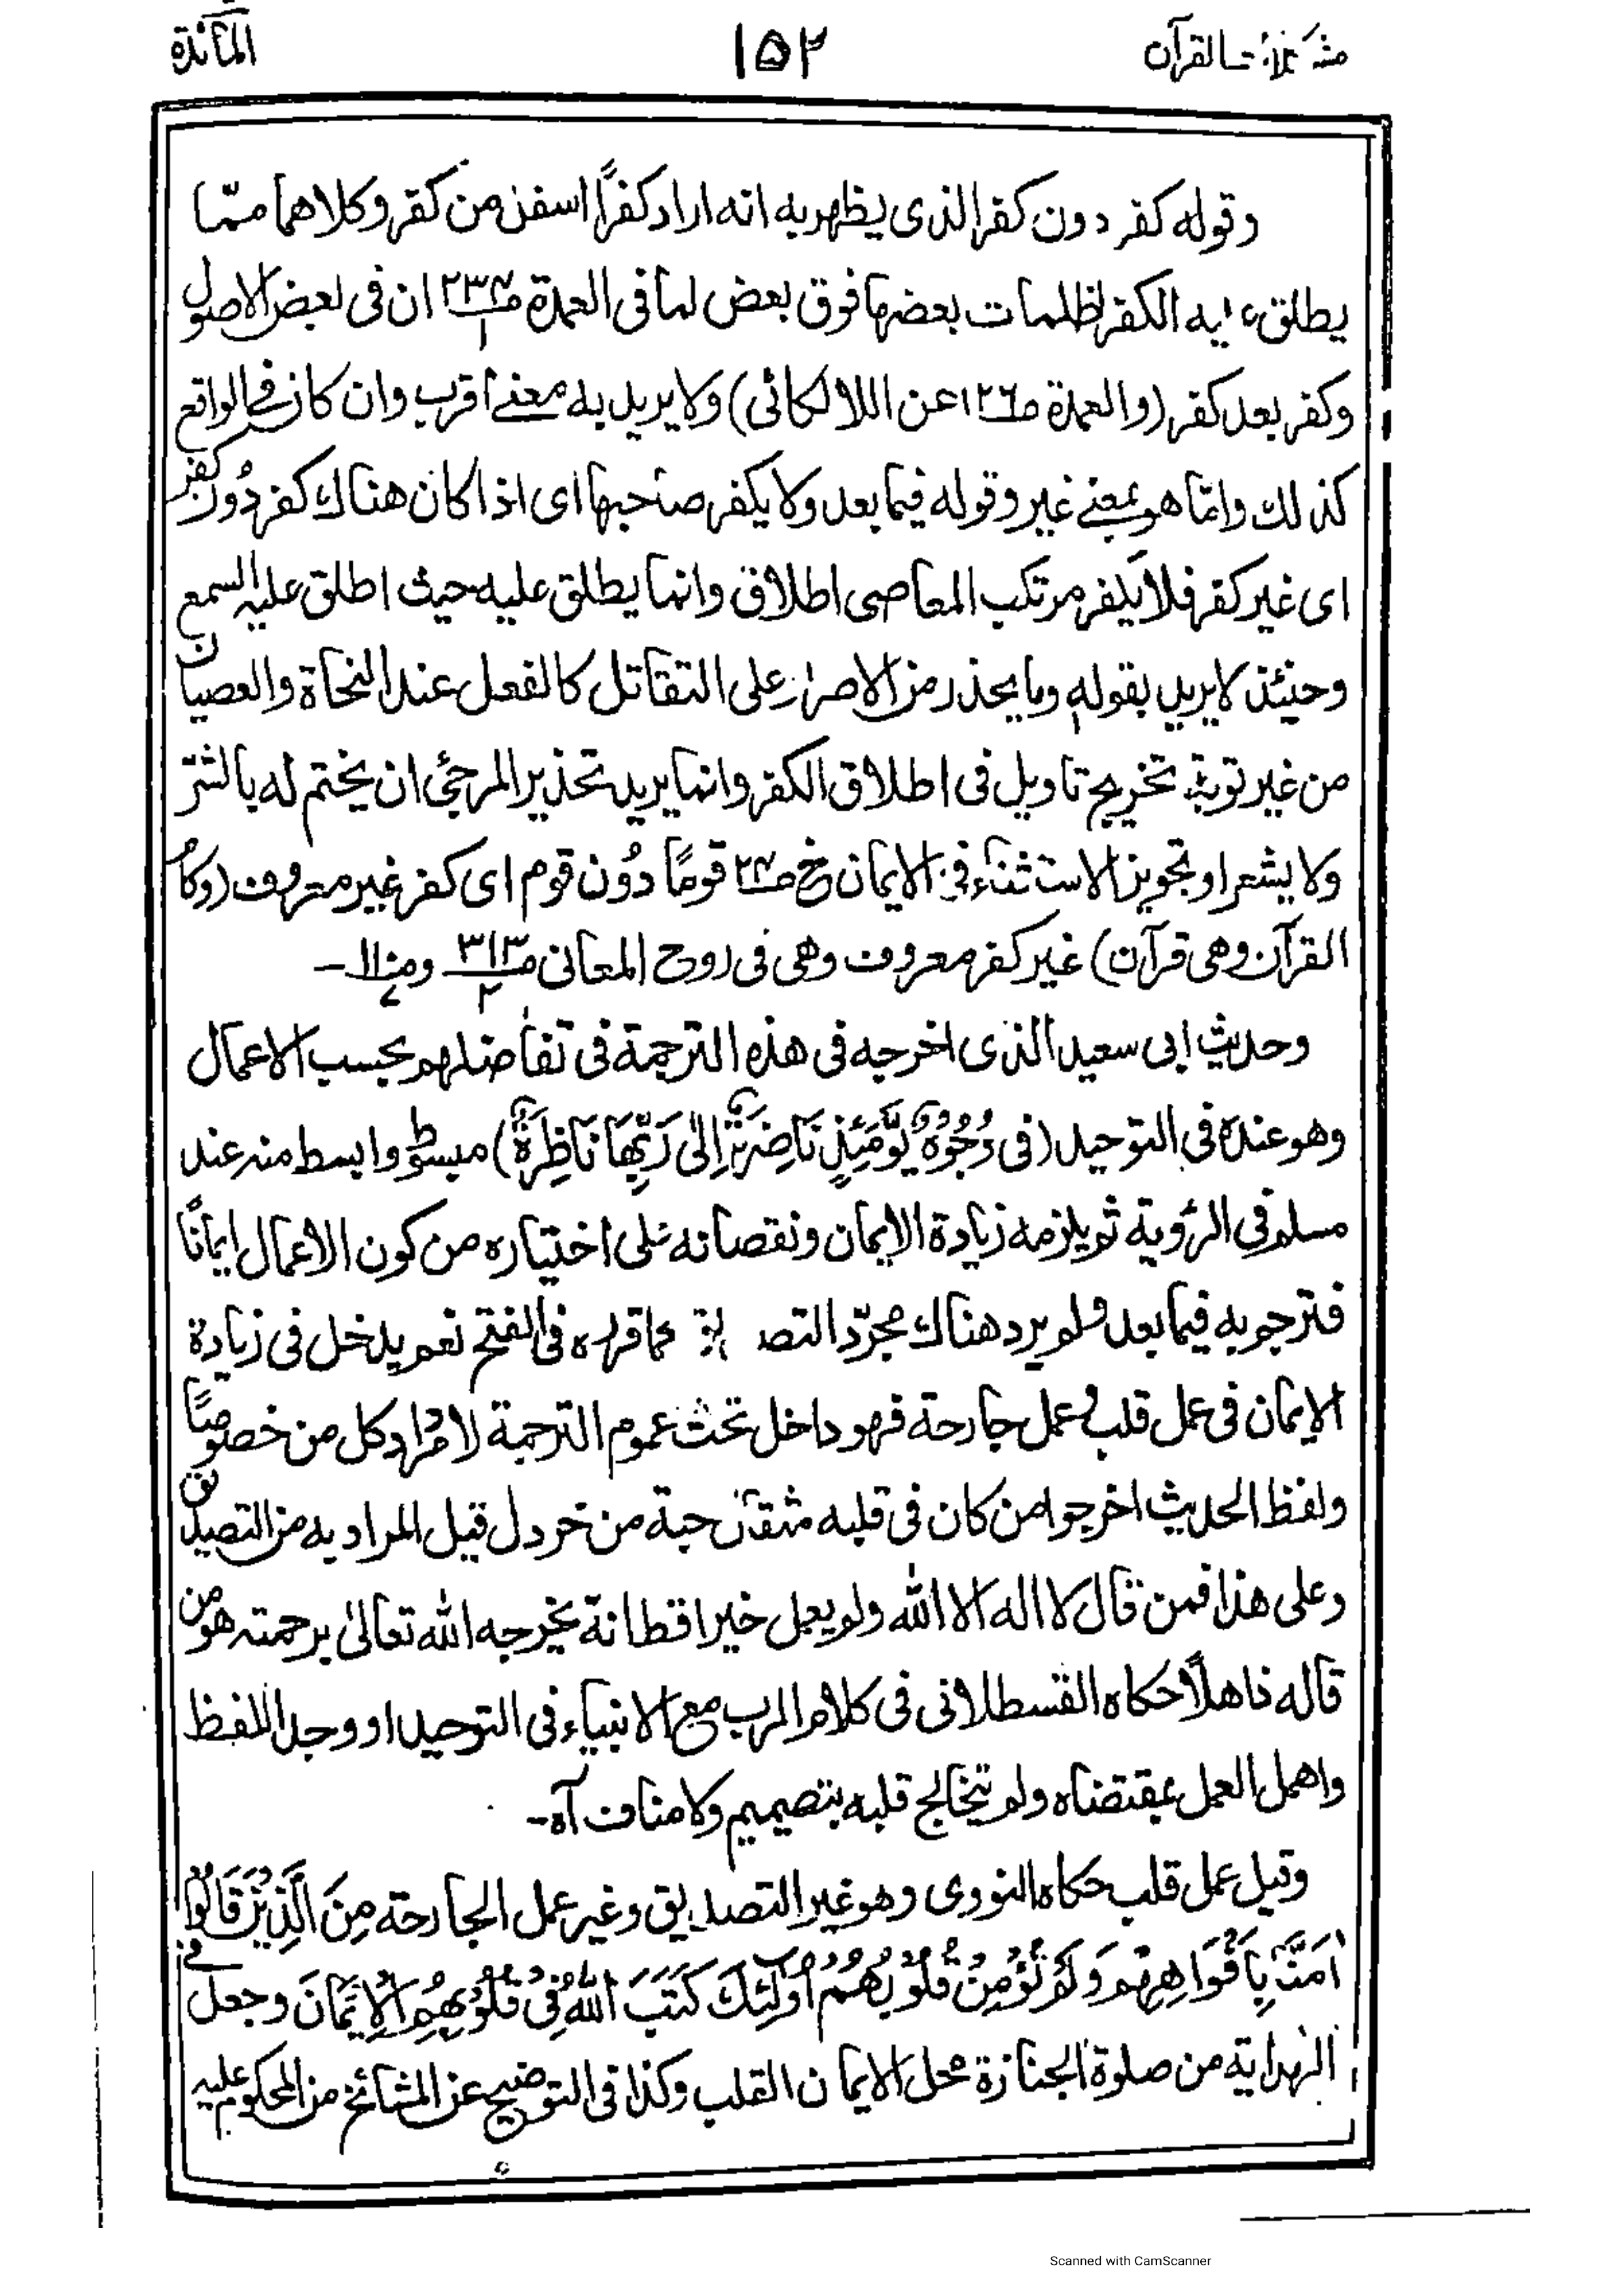 مشكلات القرآن ١٥٢ المائدة
وقوله كفر دون كفر الذى يظهر به انه اراد كفرًا اسفل من كفر وكلاهما ممّا
يطلق عليه الكفر لظلمات بعضها فوق بعض لما فى العمدة صـ٢٣٤/١ ان فى بعض الاصول
وكفر بعد كفر (والعمدة صـ١٢٦ عن اللالكائى) ولا يريد به معنى اقرب وان كان فى الواقع
كذلك وانما هو بمعنى غير وقوله فيما بعد ولا يكفر صاحبها اى اذا كان هناك كفر دُون كفر
اى غير كفر فلا يكفر مرتكب المعاصى اطلاق وانما يطلق عليه حيث اطلق عليه السمع
وحينئذ لا يريد بقوله وما يحذر من الاصرار على التقاتل كالفعل عند النحاة والعصيان
من غير توبة تخريج تاويل فى اطلاق الكفر وانما يريد تحذير المرجئ ان يختم له بالشر
ولا يشعر او تجويز الاستثناء فى الايمان خ صـ٢٤ قومًا دُون قوم اى كفر غير معروف (وكا
القرآن وهى قرآن) غير كفر معروف وهى فى روح المعانى صـ٣١٣/٢ و
وحديث ابى سعيد الذى اخرجه فى هذه الترجمة فى تفاضلهم بحسب الاعمال
وهو عنده فى التوحيد (فى وُجُوْهٌ يَّوْمَئِذٍ نَاضِرَةٌ اِلٰى رَبِّهَا نَاظِرَةٌ) مبسوط وابسط منه عند
مسلم فى الرؤية ثم يلزمه زيادة الايمان ونقصانه على اختياره من كون الاعمال ايمانًا
فترجم به فيما بعد ولم يرد هناك مجرّد التصديق كما قرره فى الفتح نعم يدخل فى زيادة
الايمان فى عمل قلب وعمل جارحة فهو داخل تحت عموم الترجمة لا مراد كل من خصوصًا
ولفظ الحديث اخرجوا من كان فى قلبه مثقال حبة من خردل قيل المراد به من التصديق
وعلى هذا فمن قال لا اله الا الله ولم يعمل خيرا قط انه يخرجه الله تعالىٰ برحمته هو من
قاله ذاهلاً حكاه القسطلانى فى كلام الرب مع الانبياء فى التوحيد او وجد اللفظ
واهمل العمل بمقتضاه ولم يتخالج قلبه بتصميم ولا مناف آه-
وقيل عمل قلب حكاه النووى وهو غير التصديق وغير عمل الجارحة مِنَ الَّذِيْنَ قَالُوْا
اٰمَنَّا بِاَفْوَاهِهِمْ وَلَمْ تُؤْمِنْ قُلُوْبُهُمْ اُولٰٓئِكَ كَتَبَ اللّٰهُ فِىْ قُلُوْبِهِمُ الْاِيْمَانَ وجعل فى
الهداية من صلوة الجنازة محل الايمان القلب وكذا فى التوضيح عن المشائخ من المحكوم عليه
Scanned with CamScanner